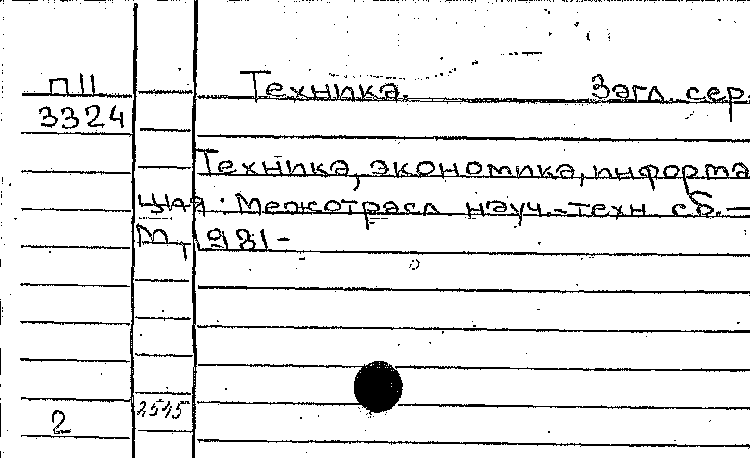 П11 Техника. Загл. сер.
3324
Техника, экономика, информа
ция: Межотрасл науч.-техн сб.—
М, 1981-
2 2545